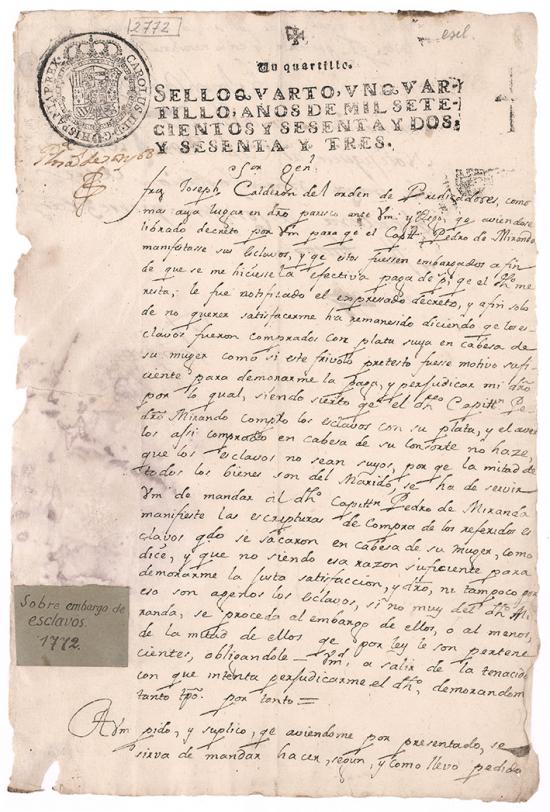 2772
esel.
CAROLUS III D G HISPANIAR REX
Un quartillo.
SELLO QVARTO, VN QVAR-
TILLO, AÑOS DE MIL SETE-
CIENTOS Y SESENTA Y DOS,
Y SESENTA Y TRES.
Sor Genl.
fray Joseph Calderon del orden de Predicadores, como
mas aya lugar en dro paresco ante Vm: y Digo: qe aviendose
librado decreto por Vm para qe el Capitn. Pedro de Miranda
manifestase sus Esclavos, y qe estos fuessen embargados a fin
de que se me hiciese la efectiva paga de ps. qe el dho me
resta; le fue notificado el expresado decreto, y a fin solo
de no querer satisfacerme ha remanesido diciendo qe los es-
clavos fueron comprados con plata suya en cabesa de
su muger como si este frivolo pretesto fuesse motivo sufi-
ciente para demorarme la paga, y perjudicar mi dro
por lo qual, siendo sierto qe el dho Capitn Pe-
dro Mirando compro los esclavos con su plata, y el aver
los asi comprado en cabesa de su Consorte no haze,
que los esclavos no sean suyos, por qe la mitad de
todos los bienes son del Marido, se ha de servir
Vm de mandar al dho. Capitn Pedro de Miranda
manifieste las escripturas de Compra de los referidos es
clavos qdo se sacaron en cabesa de su muger, como
dice, y que no siendo esa razon suficiente para
demorarme la justa satisfaccion, y dro, ni tampoco por
eso son agenos los Esclavos, si no muy del dho. Mi
randa, se proceda al embargo de ellos, o al menos,
de la mitad de ellos qe por ley le son pertene
cientes, obligandole Vm, a salir de la tenacida
con que intenta perjudicarme el dho, demorandom
tanto tpo. por tanto=
A Vm pido, y suplico, qe aviendome por presentado, se
sirva de mandar hacer, segun, y como llevo pedido
Sobre embargo de
esclavos.
1772.